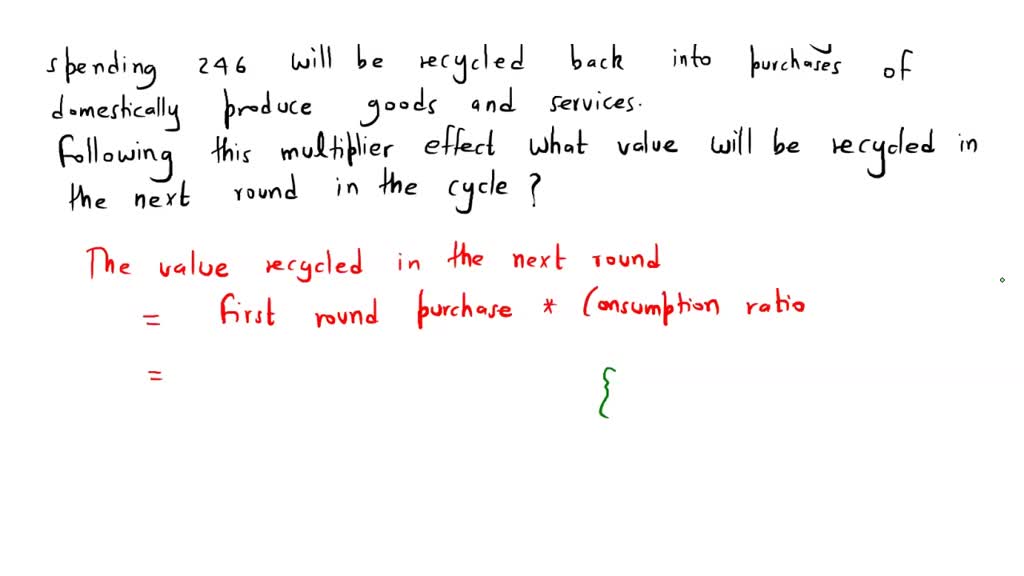 spending 246 will be recycled back into purchases of
domestically produce goods and services.
Following this multiplier effect what value will be recycled in
the next round in the cycle ?
The value recycled in the next round
= first round purchase * Consumption ratio
= {